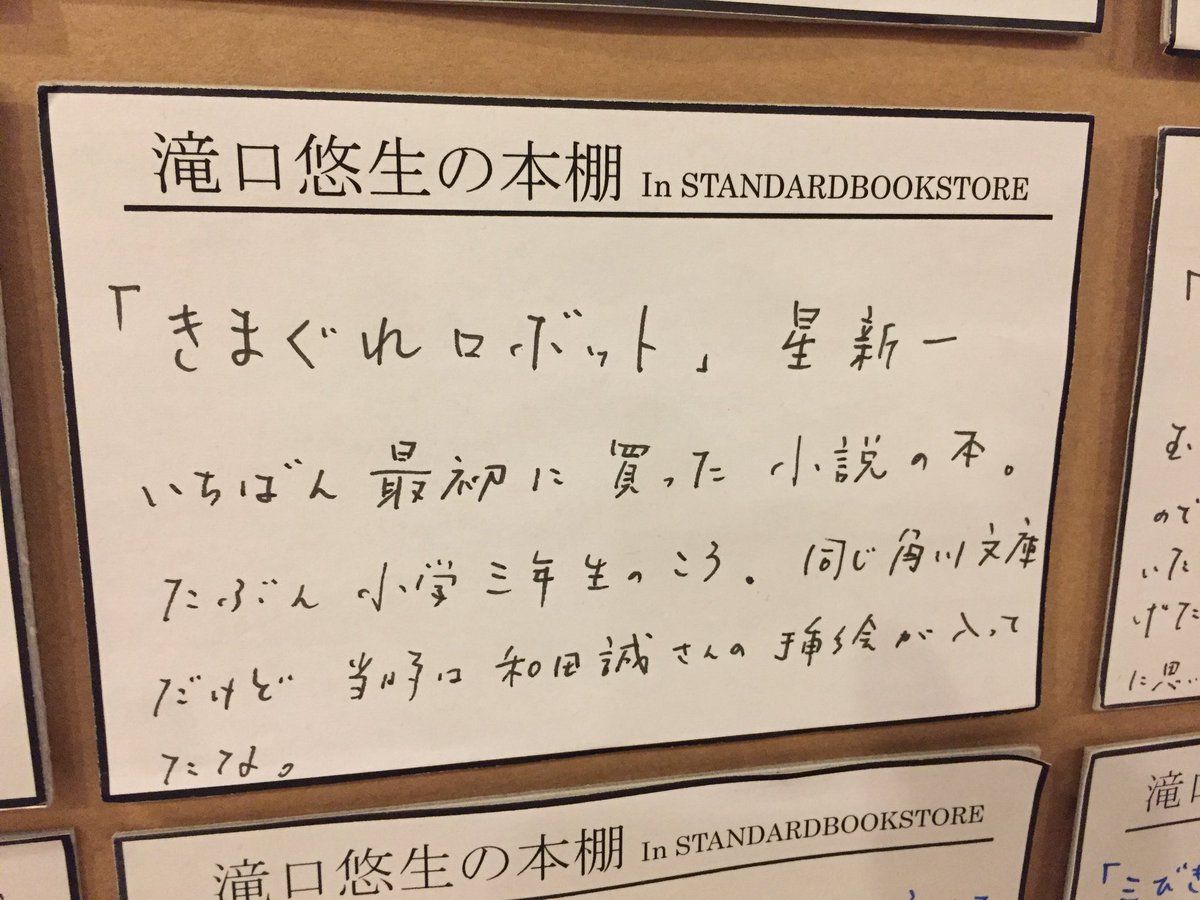 滝口悠生の本棚 In STANDARDBOOKSTORE
「きまぐれロボット」 星新一
いちばん最初に買った小説の本。
たぶん小学三年生のころ。同じ角川文庫
だけど当時は和田誠さんの挿絵が入って
たな。
ので
いた
げた
に思い
滝口悠生の本棚 In STANDARDBOOKSTORE
滝口
「三びき